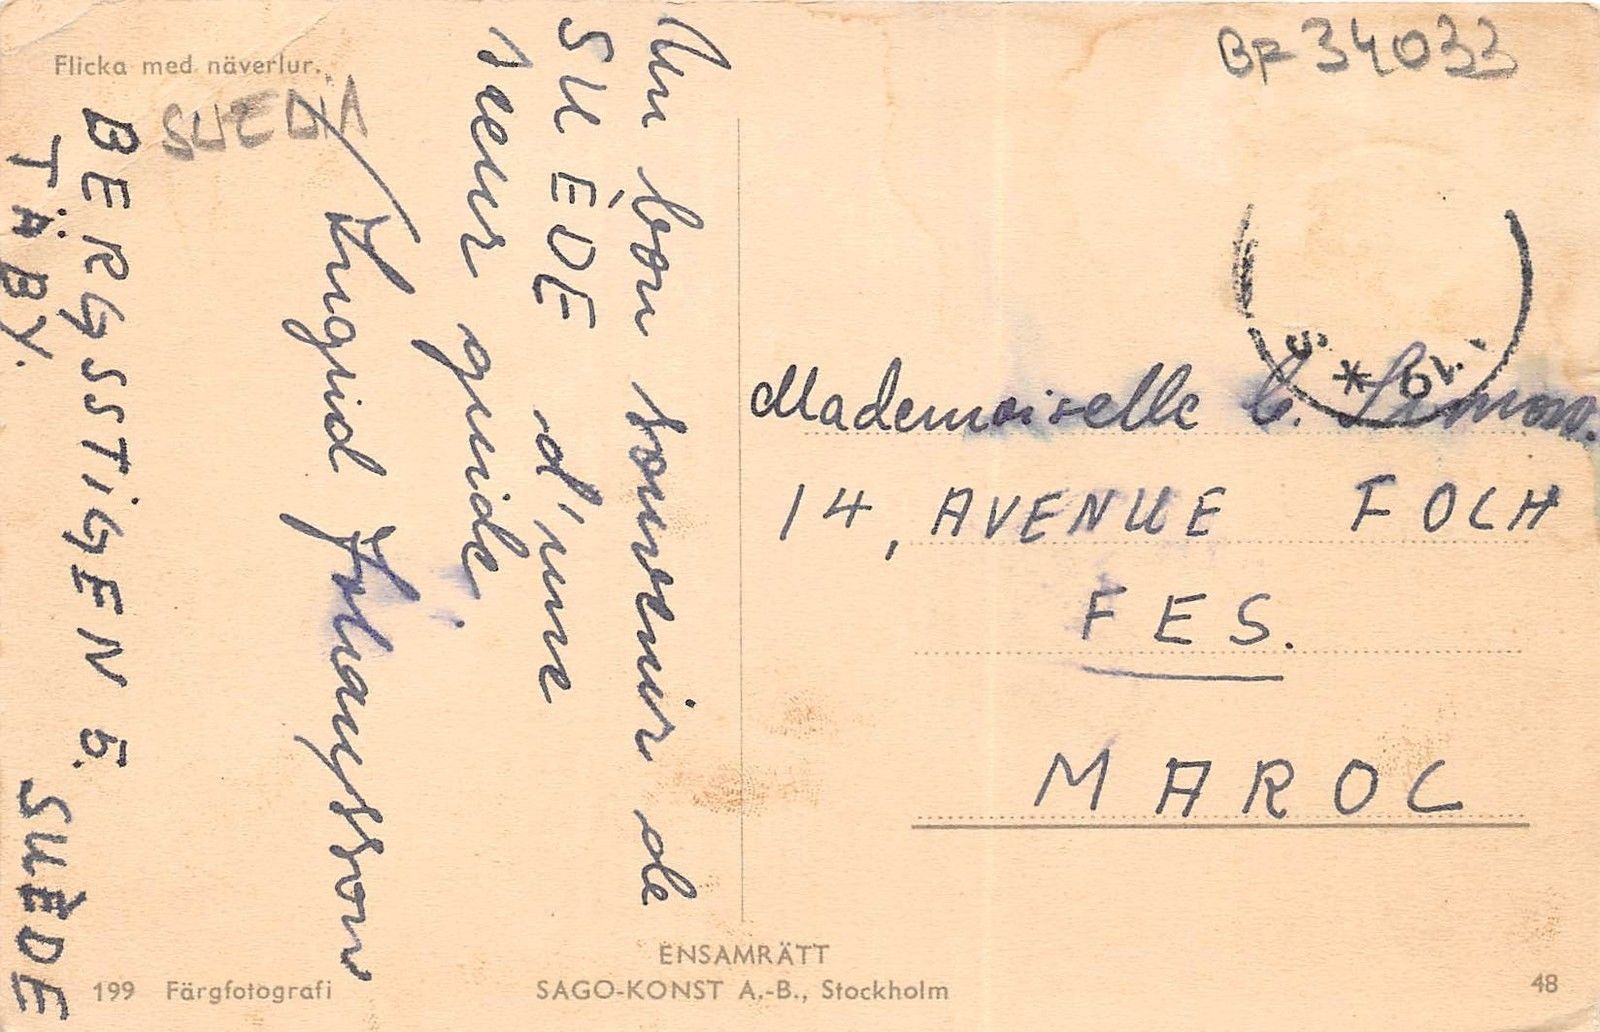 Flicka med näverlur.
SUEDIA
BF 34033
Un bon souvenir de
SUÈDE d'une
seeur guide.
Ingrid Johansson
BERGSSTIGEN 5.
TÄBY. SUÈDE
Mademoiselle C.
14, AVENUE FOCH
FES.
MAROC
ENSAMRÄTT
199 Färgfotografi SAGO-KONST A.-B., Stockholm 48